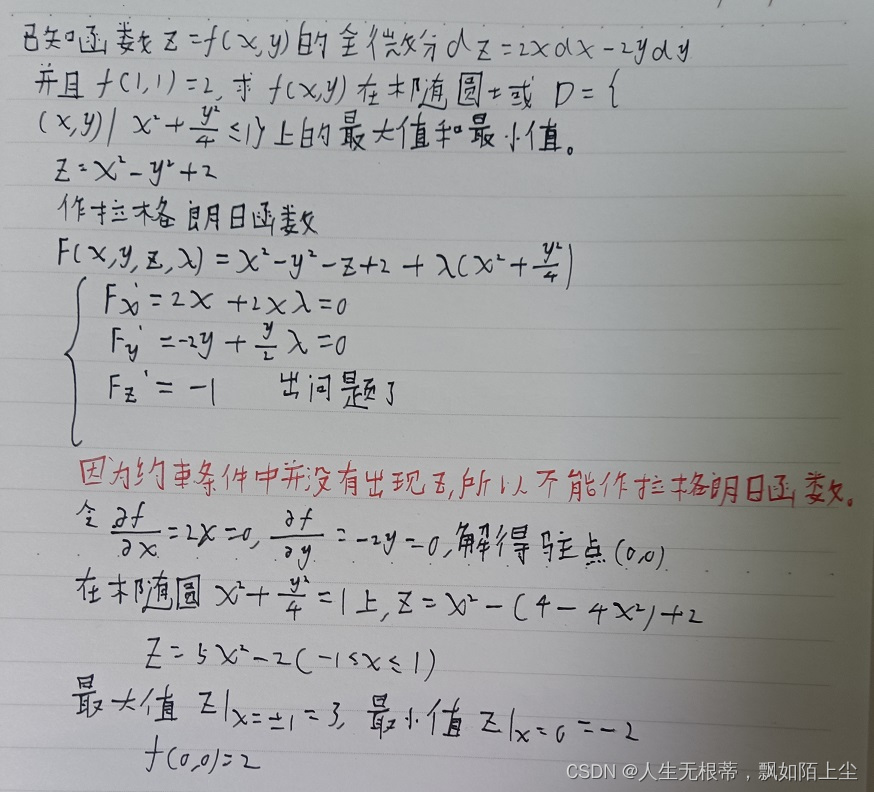 已知函数z=f(x,y)的全微分dz=2xdx-2ydy
并且f(1,1)=2,求f(x,y)在椭圆域D={
(x,y)| x²+y²/4≤1}上的最大值和最小值。
z=x²-y²+2
作拉格朗日函数
F(x,y,z,λ)=x²-y²-z+2+λ(x²+y²/4)
Fx'=2x+2xλ=0
Fy'=-2y+y/2λ=0
Fz'=-1 出问题了
因为约束条件中并没有出现z,所以不能作拉格朗日函数。
令∂f/∂x=2x=0,∂f/∂y=-2y=0,解得驻点(0,0)
在椭圆x²+y²/4=1上,z=x²-(4-4x²)+2
z=5x²-2(-1≤x≤1)
最大值z|x=±1=3,最小值z|x=0=-2
f(0,0)=2
CSDN @人生无根蒂，飘如陌上尘